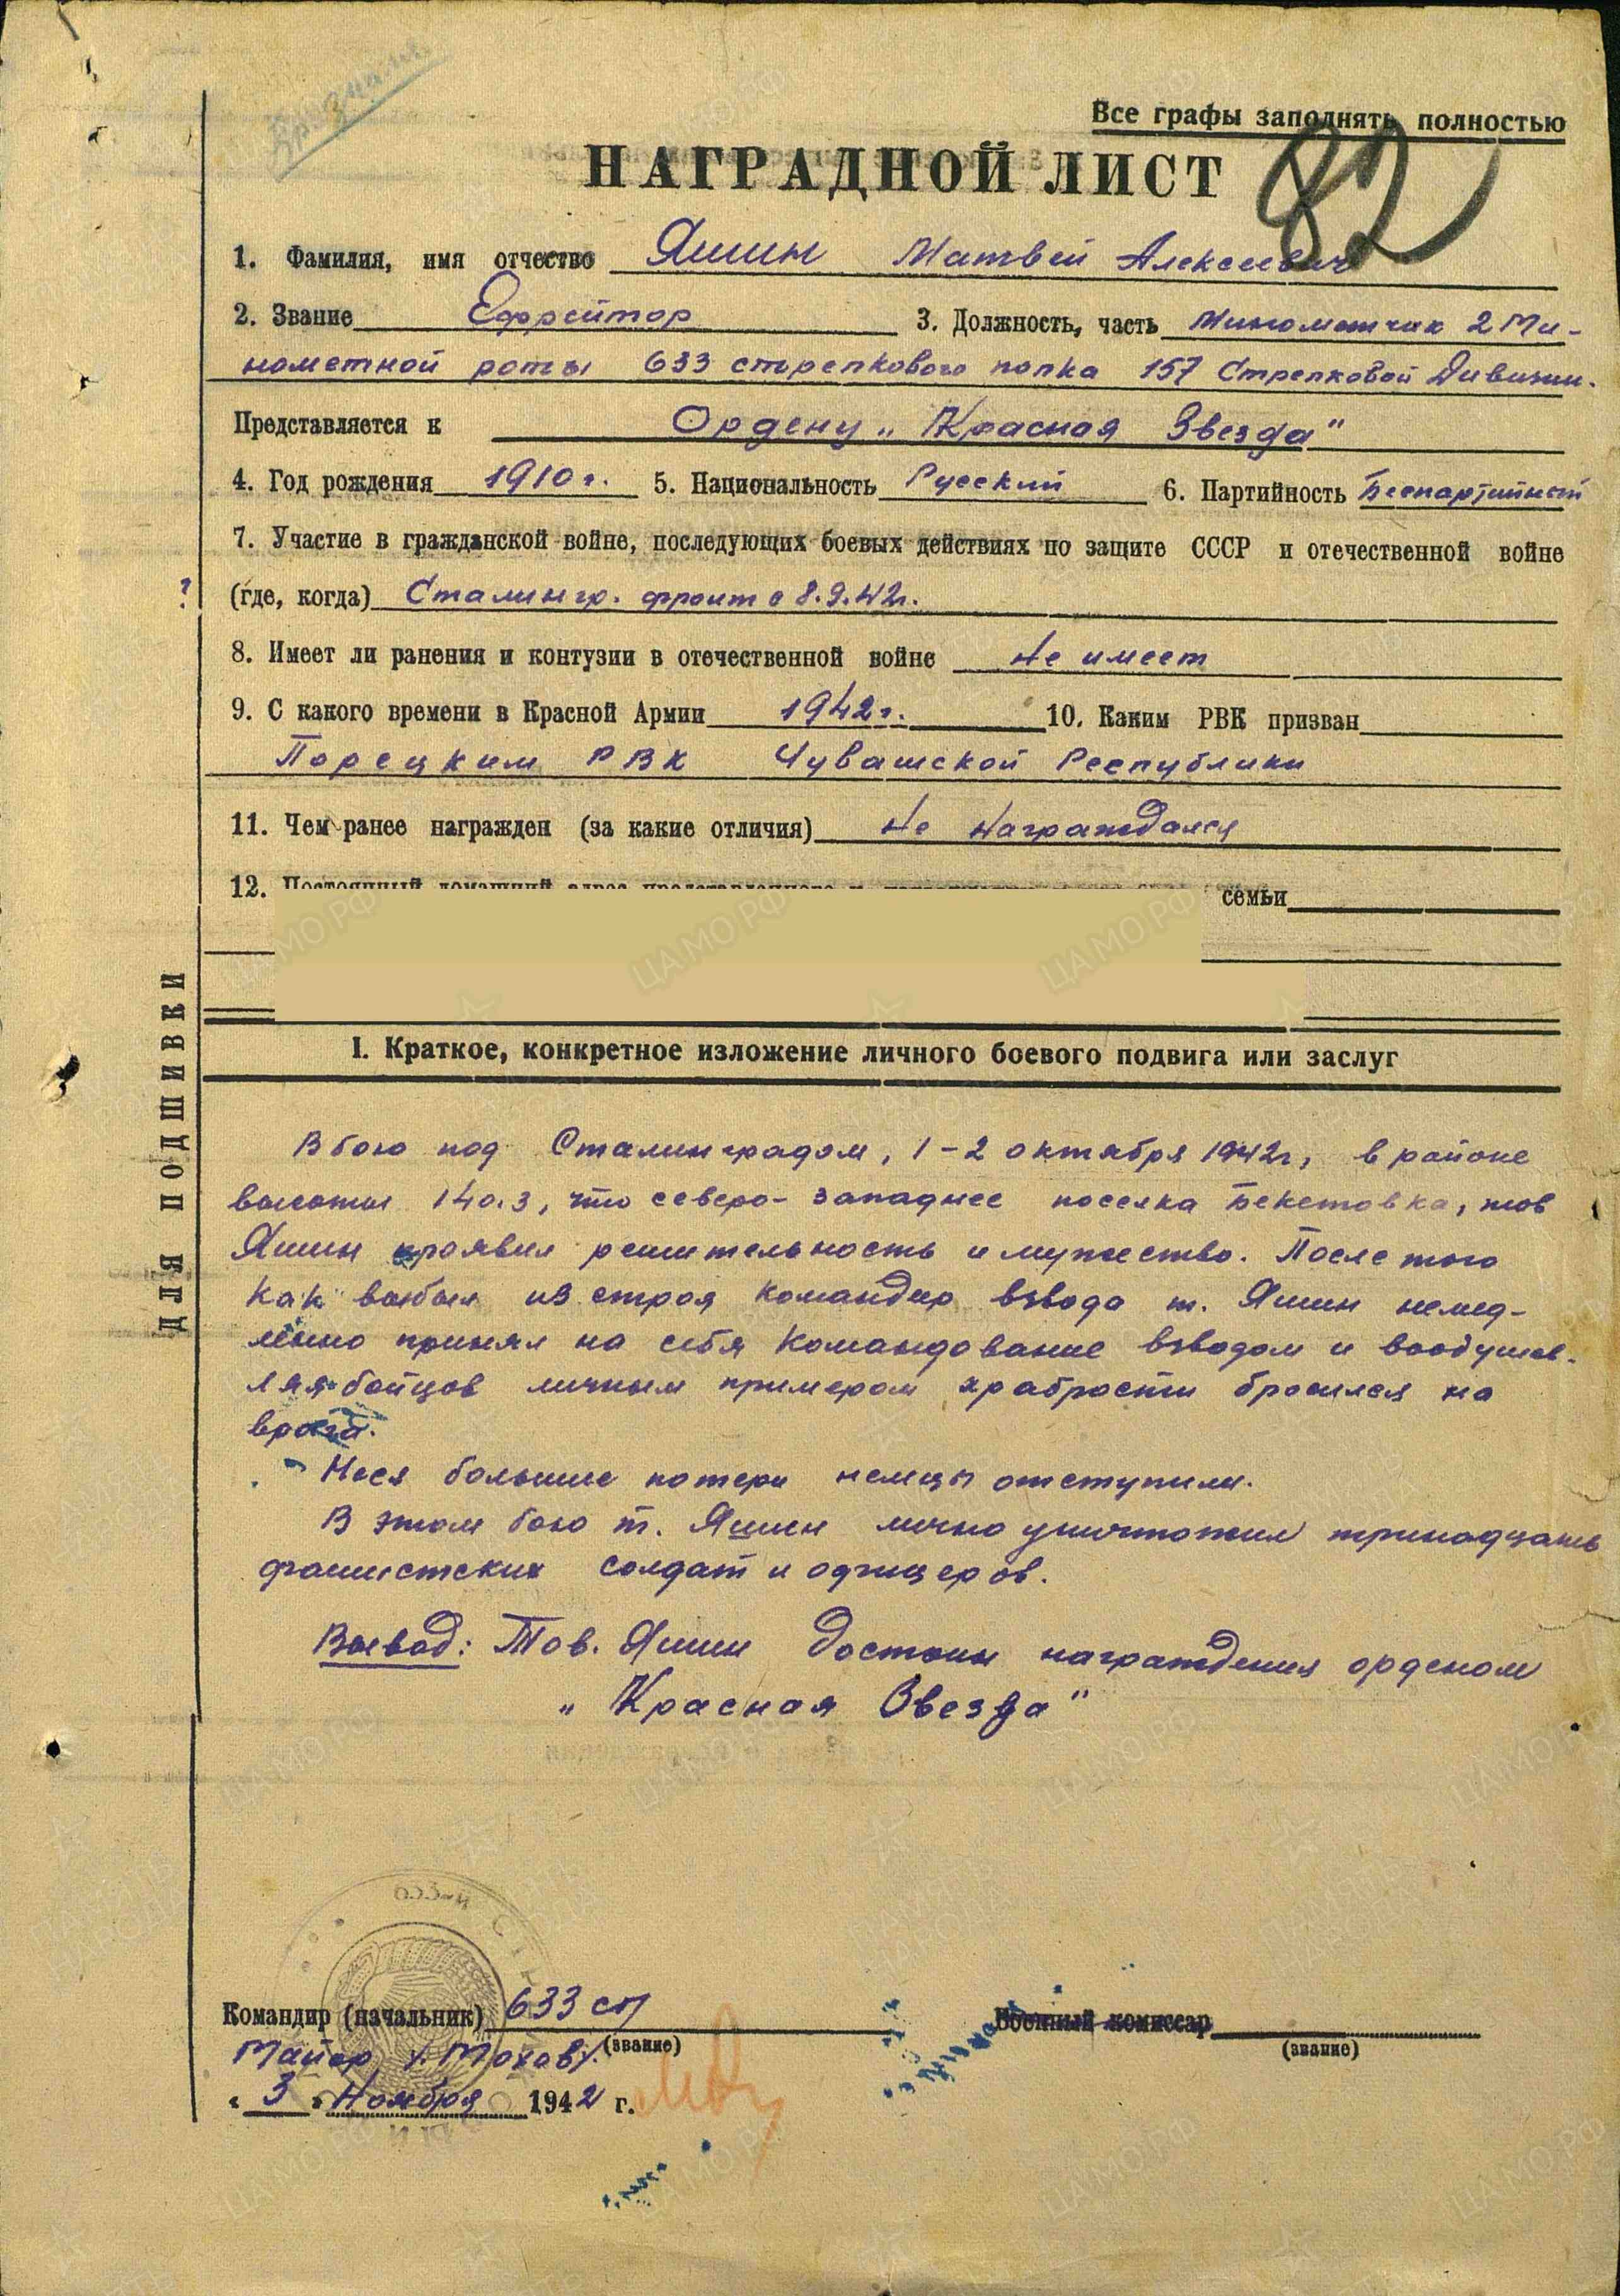 Все графы заполнять полностью
82
НАГРАДНОЙ ЛИСТ
1. Фамилия, имя отчество Яшин Матвей Алексеевич
2. Звание Ефрейтор 3. Должность, часть Минометчик 2 Ми-
нометной роты 633 стрелкового полка 157 Стрелковой Дивизии.
Представляется к Ордену „Красная Звезда"
4. Год рождения 1910 г. 5. Национальность Русский 6. Партийность Беспартийный
7. Участие в гражданской войне, последующих боевых действиях по защите СССР и отечественной войне
(где, когда) Сталингр. фронт с 8.9.42г.
8. Имеет ли ранения и контузии в отечественной войне Не имеет
9. С какого времени в Красной Армии 1942г. 10. Каким РВК призван
Порецким РВК Чувашской Республики
11. Чем ранее награжден (за какие отличия) Не награждался
12. Постоянный домашний адрес семьи
ДЛЯ ПОДШИВКИ
I. Краткое, конкретное изложение личного боевого подвига или заслуг
В бою под Сталинградом, 1-2 октября 1942г, в районе
высоты 140.3, что северо-западнее поселка Бекетовка, тов
Яшин проявил решительность и мужество. После того
как выбыл из строя командир взвода т. Яшин немед-
ленно принял на себя командование взводом и воодушев-
ляя бойцов личным примером храбрости бросился на
врага.
Неся большие потери немцы отступили.
В этом бою т. Яшин лично уничтожил тринадцать
фашистских солдат и офицеров.
Вывод: Тов. Яшин достоин награждения орденом
„Красная Звезда"
Командир (начальник) 633 сп Военный комиссар
(звание) (звание)
Майор /Мохов/.
„3" Ноября 1942 г.
ЦАМО РФ